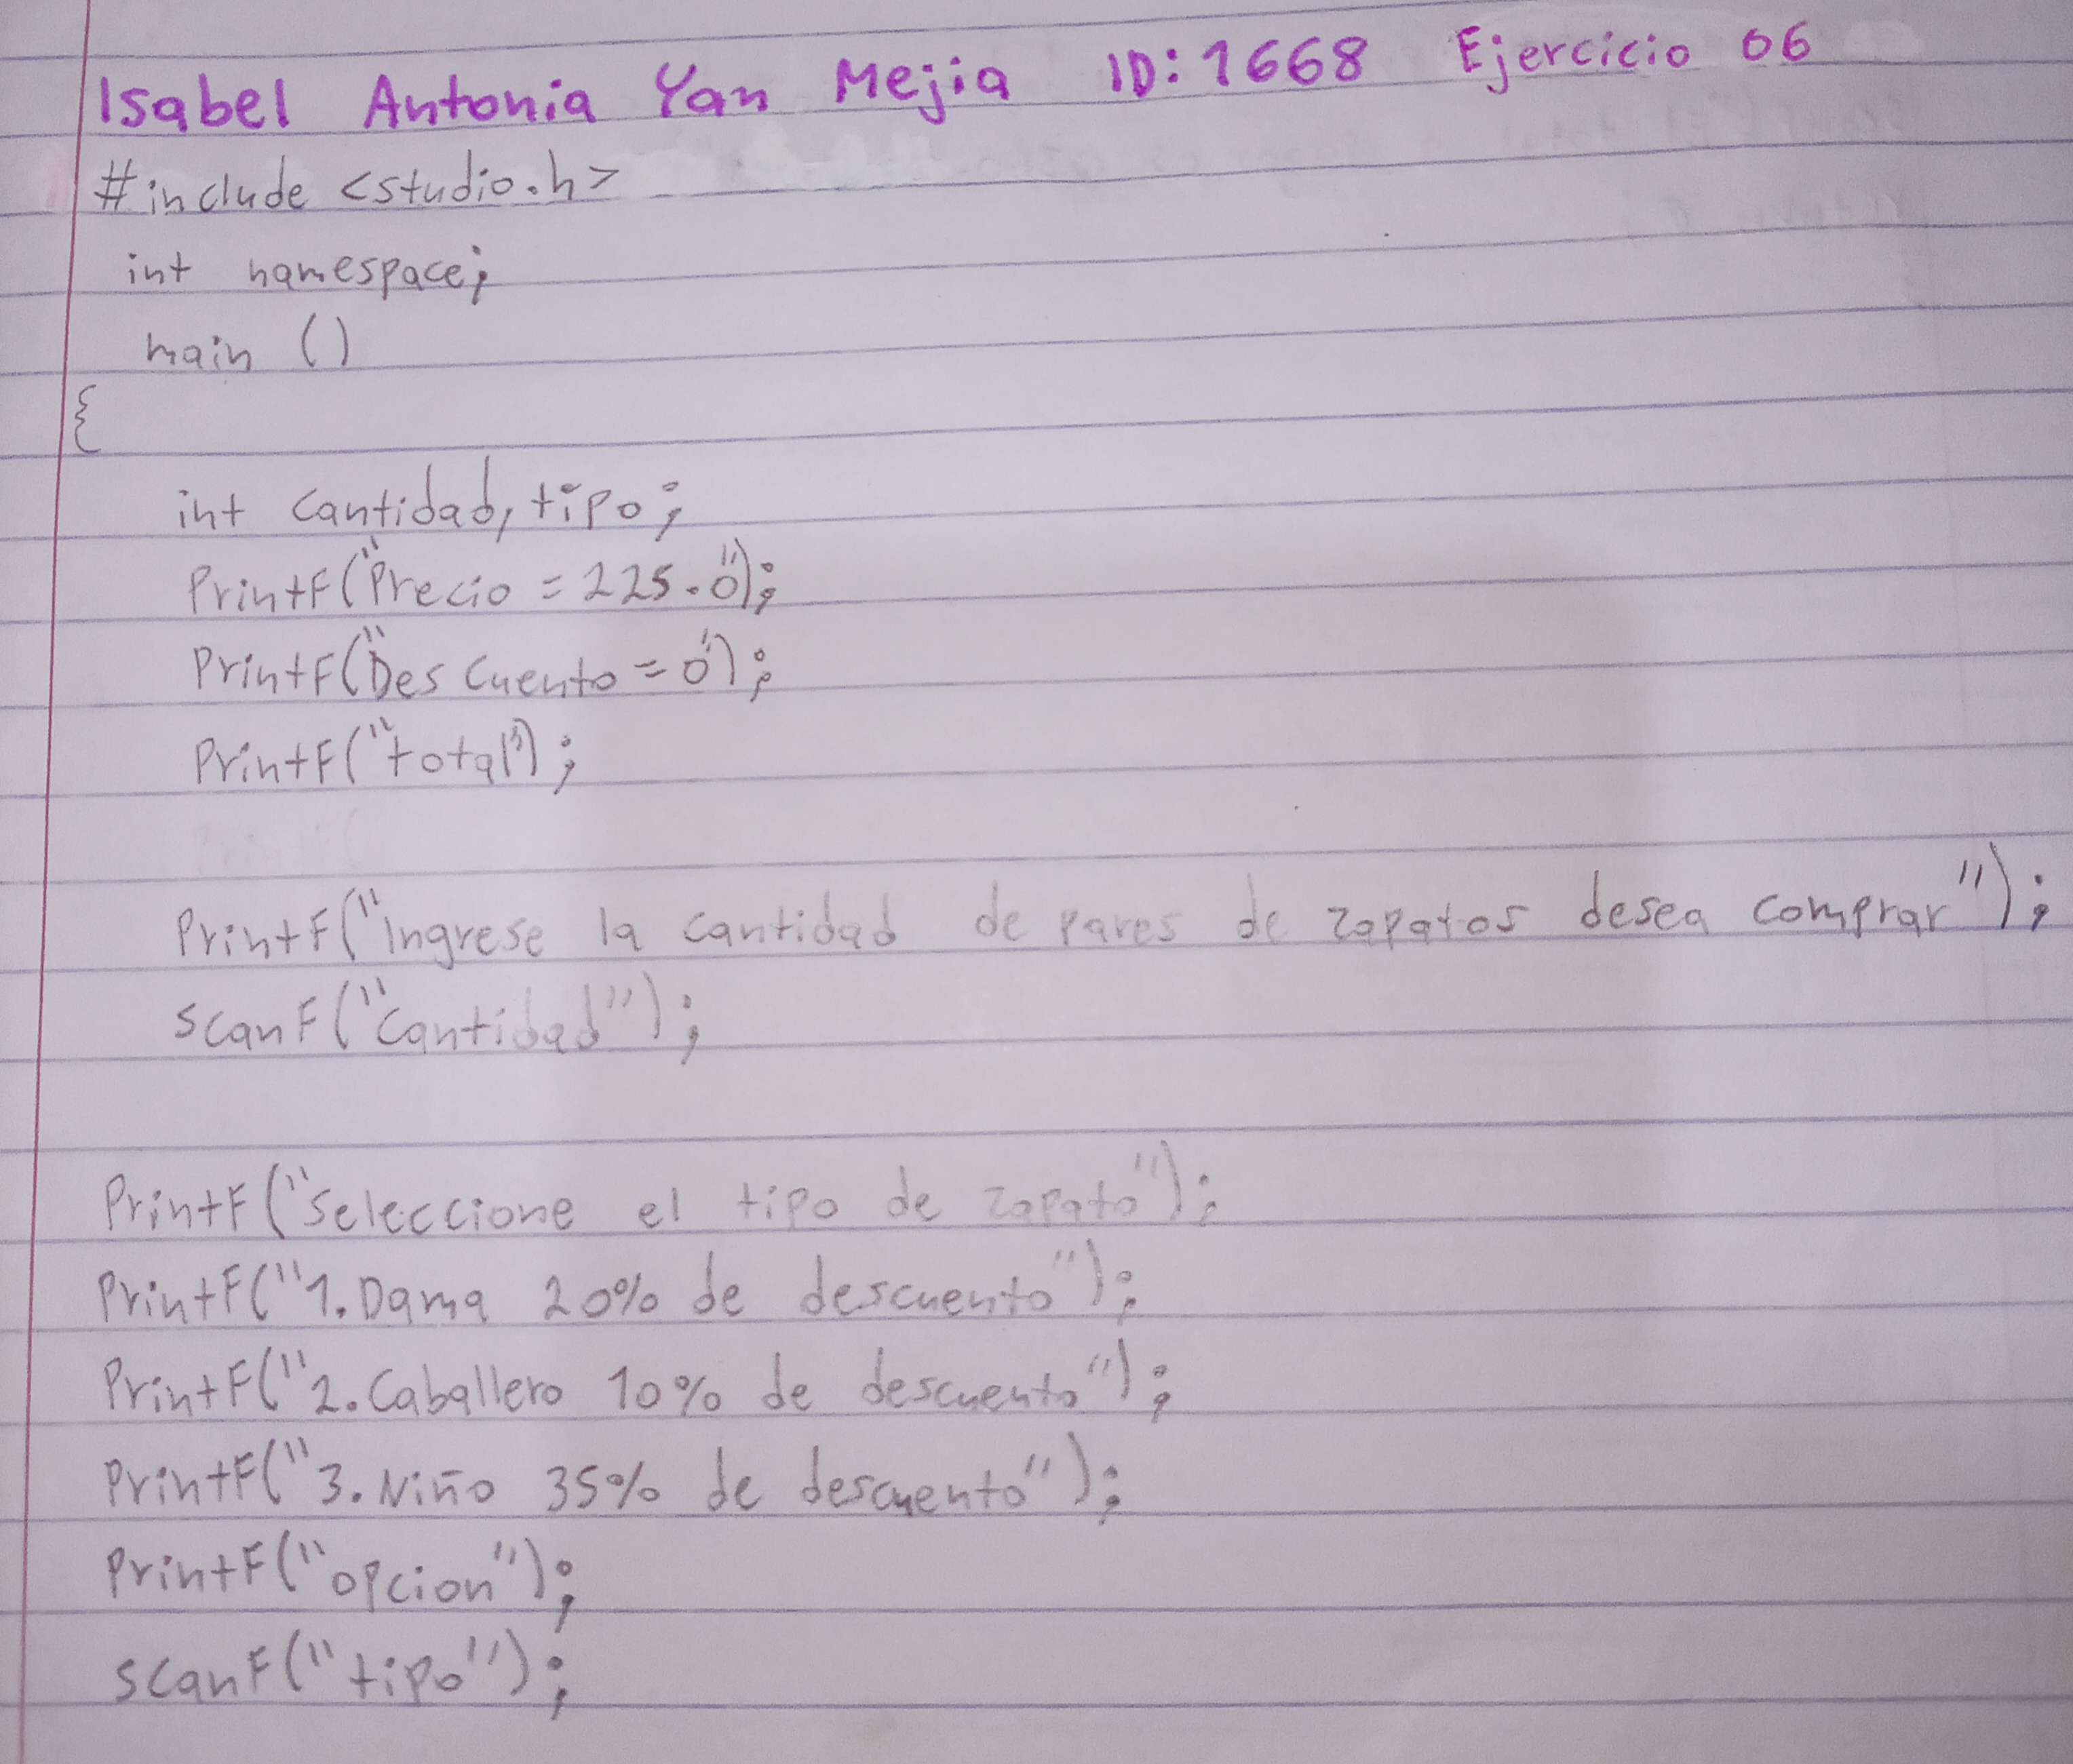 Isabel Antonia Yan Mejia ID: 1668 Ejercicio 06
#include <studio.h>
int namespace;
main ()
{
int cantidad, tipo;
PrintF("Precio = 225.0");
PrintF("Descuento = 0");
PrintF("total");
PrintF("Ingrese la cantidad de pares de zapatos desea comprar");
scanF("Cantidad");
PrintF("Seleccione el tipo de zapato");
PrintF("1. Dama 20% de descuento");
PrintF("2. Caballero 10% de descuento");
PrintF("3. Niño 35% de descuento");
PrintF("opcion");
scanF("tipo");